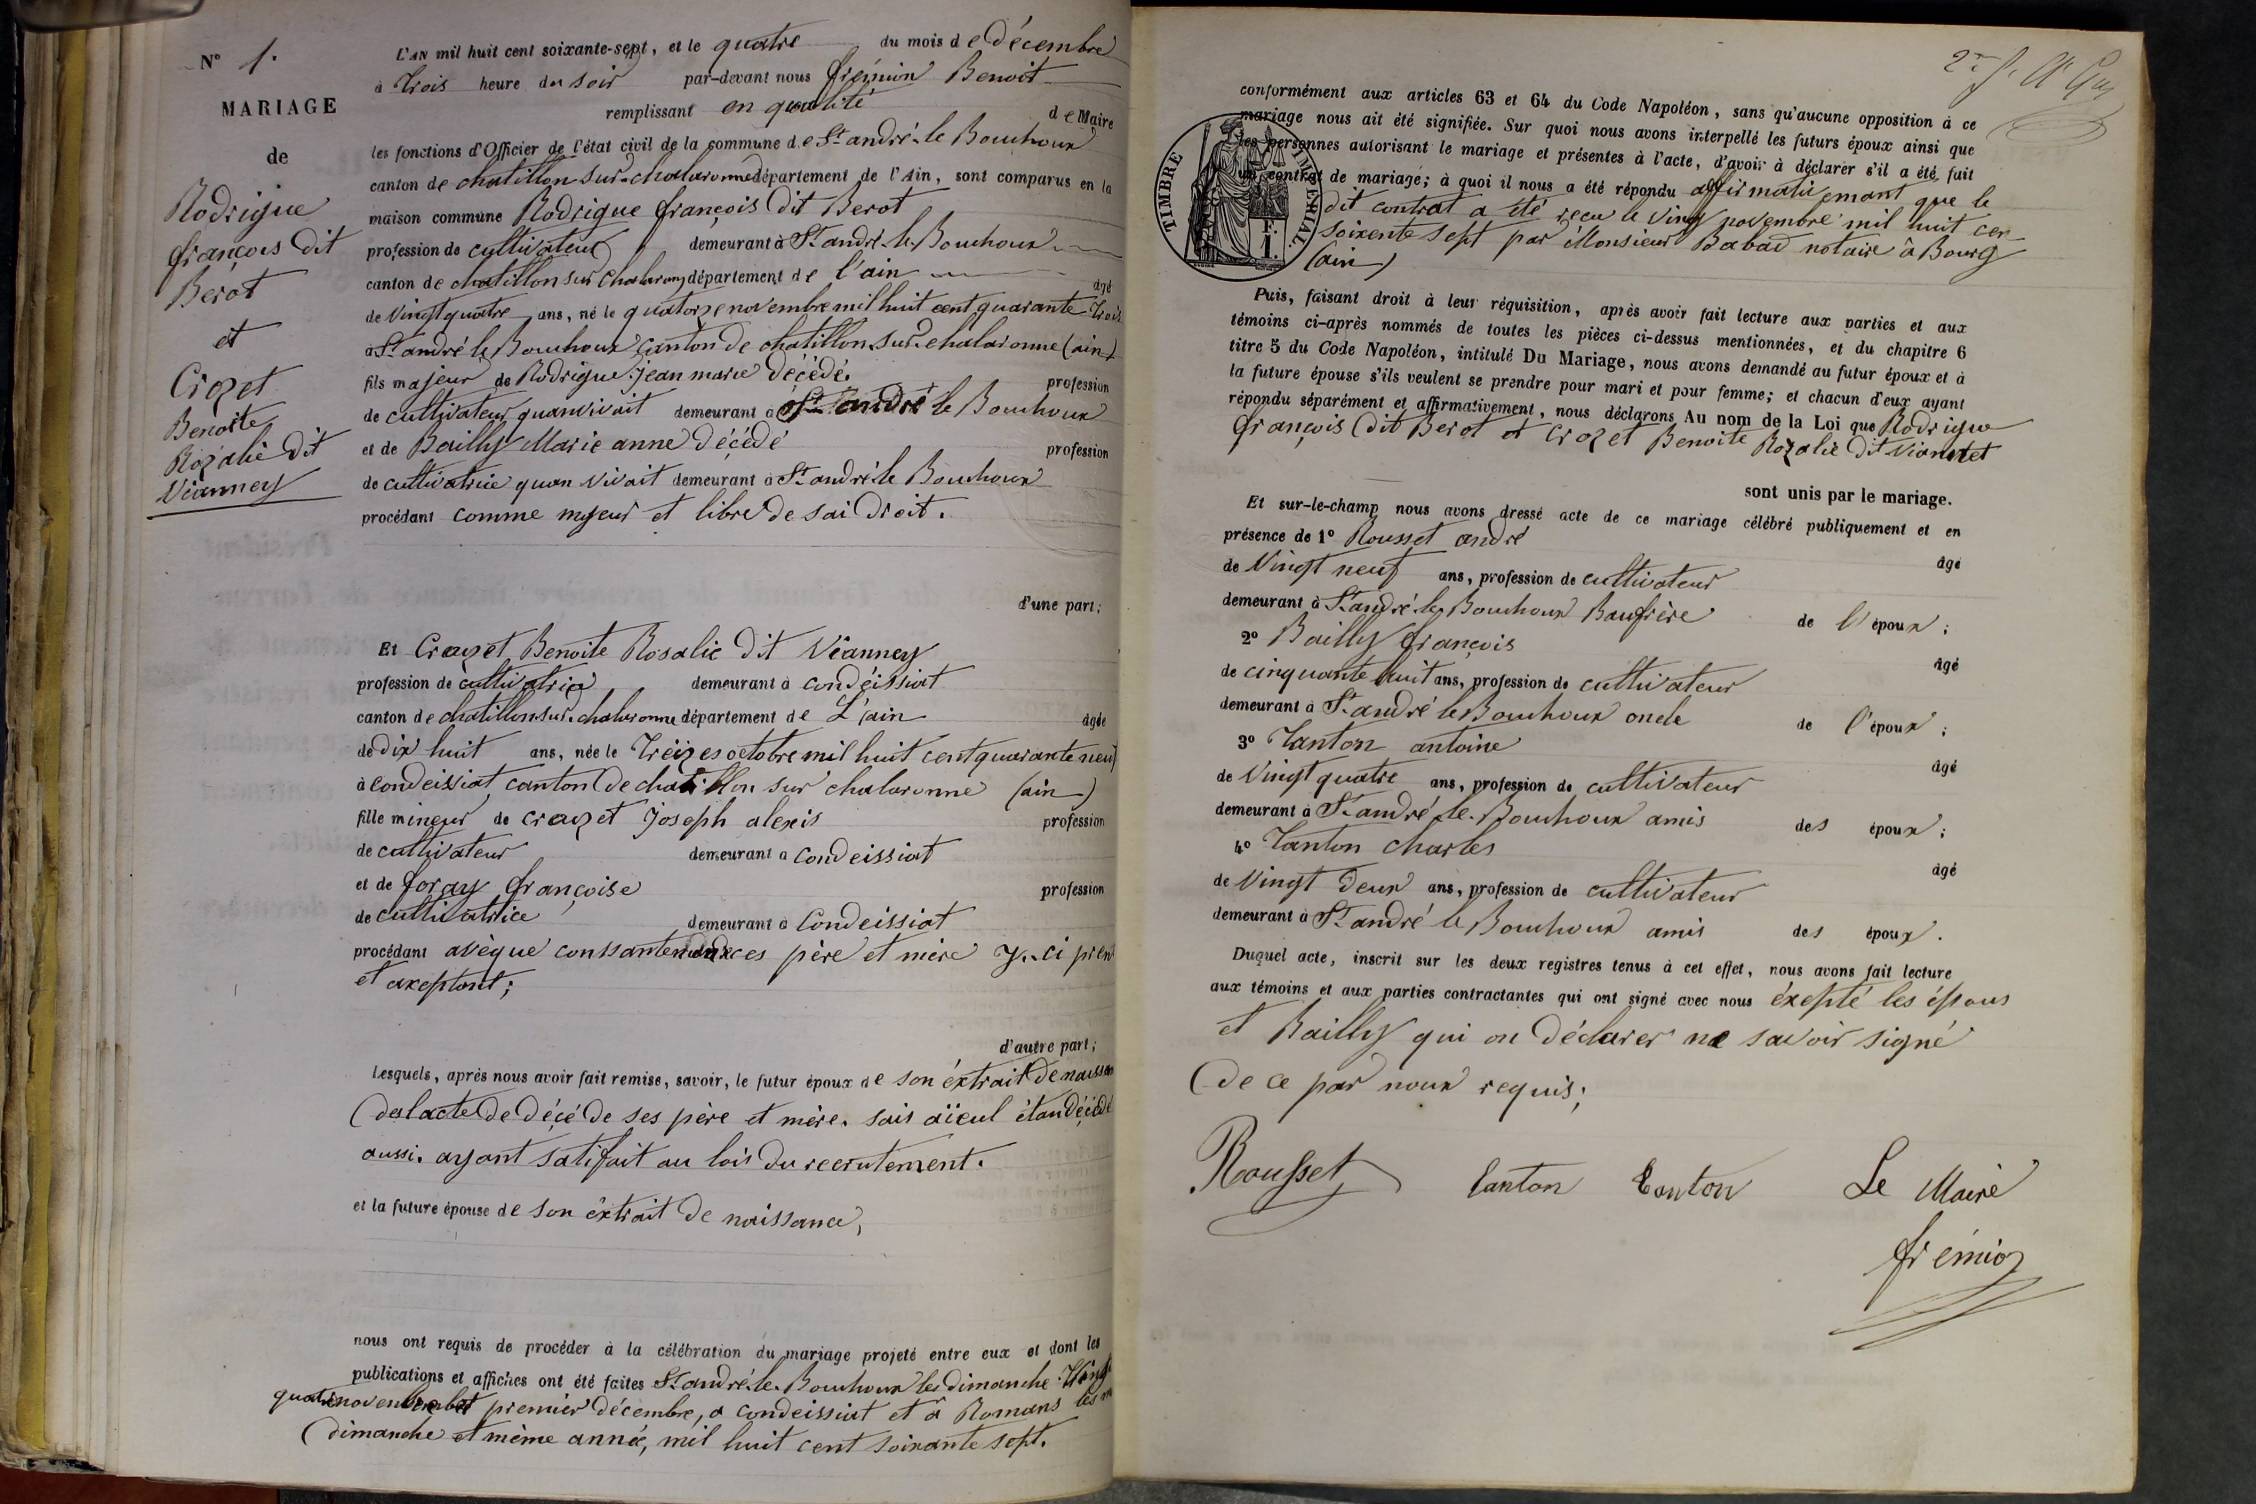 N° 1.
MARIAGE
de
Rodrigue
françois dit
Berot
et
Crozet
Benoite
Rozalie dit
Vianney
L'AN mil huit cent soixante-sept, et le quatre du mois de décembre
à trois heure du soir par-devant nous frémion Benoit
remplissant en qualité de Maire
les fonctions d'Officier de l'état civil de la commune de St andré-le Bouchoux
canton de chatillon sur-chalaronne département de l'Ain, sont comparus en la
maison commune Rodrigue françois dit Berot
profession de cultivateur demeurant à St andré le Bouchoux
canton de chatillon sur chalarony département de l'ain âgé
de vingt quatre ans, né le quatorze novembre mil huit cent quarante trois
à St andré le Bouchoux canton de chatillon sur chalaronne (ain)
fils majeur de Rodrigue jean marie décédé. profession
de cultivateur quanvivait demeurant à St andré le Bouchoux
et de Bailly Marie anne décédé profession
de cultivatrice quan vivait demeurant à St andré le Bouchoux
procédant comme majeur et libre de sai droit.
d'une part;
Et Crozet Benoite Rosalie dit Vianney
profession de cultivatrice demeurant à condéissiat
canton de chatillon sur chalaronne département de L'ain âgée
de dix huit ans, née le treizes octobre mil huit cent quarante neuf
à condeissiat canton de chatillon sur chalaronne (ain)
fille mineur de crozet joseph alexis profession
de cultivateur demeurant à condeissiat
et de foray françoise profession
de cultivatrice demeurant à Condeissiat
procédant avèque conssantement ces père et mère y. ci prent
et axeptant;
d'autre part;
Lesquels, après nous avoir fait remise, savoir, le futur époux de son éxtrait de naissan
de lacte de décé de ses père et mère. sais aïeul étan décédé
aussi. ayant satifait au lois du recrutement.
et la future épouse de son êxtrait de naissance,
nous ont requis de procéder à la célébration du mariage projeté entre eux et dont les
publications et affiches ont été faites St andré-le-Bouchoux les dimanche vingt
quatre novembre et premier décembre, a condeissiat et à Romans les m
dimanche et même année, mil huit cent soixante sept.
conformément aux articles 63 et 64 du Code Napoléon, sans qu'aucune opposition à ce
mariage nous ait été signifiée. Sur quoi nous avons interpellé les futurs époux ainsi que
les personnes autorisant le mariage et présentes à l'acte, d'avoir à déclarer s'il a été fait
un contrat de mariage; à quoi il nous a été répondu affirmativemant que le
dit contrat a été reçu le vingt novembre mil huit cen
soixente sept par Monsieur Babad notaire à Bourg
(ain)
TIMBRE IMPERIAL
1 F.
Puis, faisant droit à leur réquisition, après avoir fait lecture aux parties et aux
témoins ci-après nommés de toutes les pièces ci-dessus mentionnées, et du chapitre 6
titre 5 du Code Napoléon, intitulé Du Mariage, nous avons demandé au futur époux et à
la future épouse s'ils veulent se prendre pour mari et pour femme; et chacun d'eux ayant
répondu séparément et affirmativement, nous déclarons Au nom de la Loi que Rodrigue
françois dit Berot et crozet Benoite Rozalie dit Viannet
sont unis par le mariage.
Et sur-le-champ nous avons dressé acte de ce mariage célébré publiquement et en
présence de 1° Rousset andré âgé
de vingt neuf ans, profession de cultivateur
demeurant à St andré le Bouchoux Baufrère de l'époux;
2° Bailly françois âgé
de cinquante huit ans, profession de cultivateur
demeurant à St andré le Bouchoux oncle de l'époux;
3° Tanton antoine âgé
de vingt quatre ans, profession de cultivateur
demeurant à St andré le Bouchoux amis des époux;
4° Tanton charles âgé
de vingt deux ans, profession de cultivateur
demeurant à St andré le Bouchoux amis des époux.
Duquel acte, inscrit sur les deux registres tenus à cet effet, nous avons fait lecture
aux témoins et aux parties contractantes qui ont signé avec nous éxepté les épous
et Bailly qui on déclarer ne savoir signé
de ce par noux requis;
Rousset Tanton Tanton Le Maire
frémion